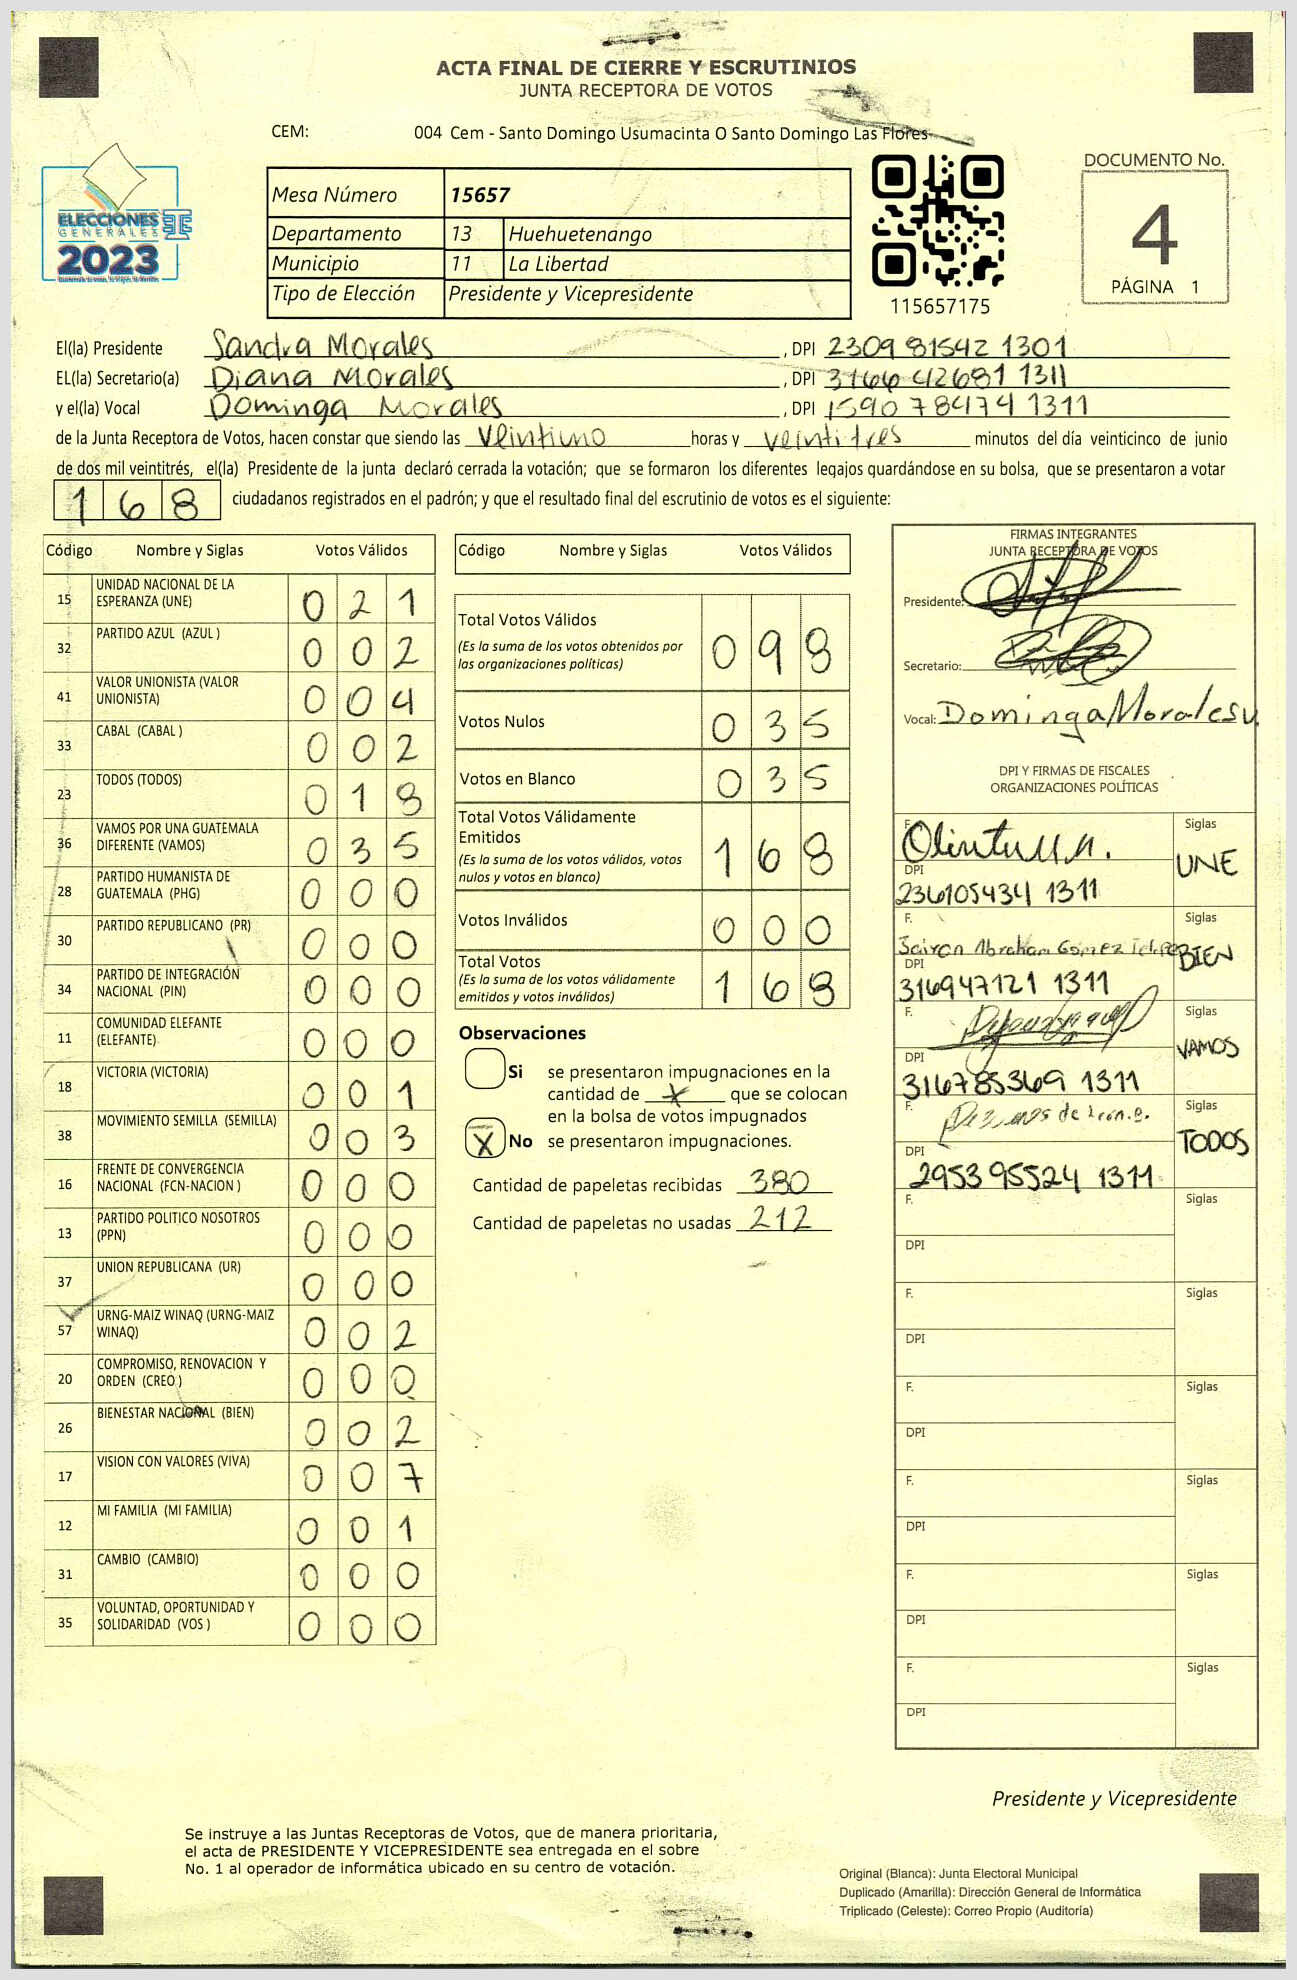 ACTA FINAL DE CIERRE Y ESCRUTINIOS
JUNTA RECEPTORA DE VOTOS
CEM: 004 Cem - Santo Domingo Usumacinta O Santo Domingo Las Flores
ELECCIONES
GENERALES
2023
Mesa Número 15657
Departamento 13 Huehuetenango
Municipio 11 La Libertad
Tipo de Elección Presidente y Vicepresidente
115657175
DOCUMENTO No.
4
PÁGINA 1
El(la) Presidente Sandra Morales , DPI 2309 81542 1301
EL(la) Secretario(a) Diana Morales , DPI 3166 42681 1311
y el(la) Vocal Dominga Morales , DPI 1590 78474 1311
de la Junta Receptora de Votos, hacen constar que siendo las veintiuno horas y veintitres minutos del día veinticinco de junio
de dos mil veintitrés, el(la) Presidente de la junta declaró cerrada la votación; que se formaron los diferentes legajos quardándose en su bolsa, que se presentaron a votar
168 ciudadanos registrados en el padrón; y que el resultado final del escrutinio de votos es el siguiente:
Código Nombre y Siglas Votos Válidos
15 UNIDAD NACIONAL DE LA ESPERANZA (UNE) 0 2 1
32 PARTIDO AZUL (AZUL ) 0 0 2
41 VALOR UNIONISTA (VALOR UNIONISTA) 0 0 4
33 CABAL (CABAL ) 0 0 2
23 TODOS (TODOS) 0 1 8
36 VAMOS POR UNA GUATEMALA DIFERENTE (VAMOS) 0 3 5
28 PARTIDO HUMANISTA DE GUATEMALA (PHG) 0 0 0
30 PARTIDO REPUBLICANO (PR) 0 0 0
34 PARTIDO DE INTEGRACIÓN NACIONAL (PIN) 0 0 0
11 COMUNIDAD ELEFANTE (ELEFANTE) 0 0 0
18 VICTORIA (VICTORIA) 0 0 1
38 MOVIMIENTO SEMILLA (SEMILLA) 0 0 3
16 FRENTE DE CONVERGENCIA NACIONAL (FCN-NACION ) 0 0 0
13 PARTIDO POLITICO NOSOTROS (PPN) 0 0 0
37 UNION REPUBLICANA (UR) 0 0 0
57 URNG-MAIZ WINAQ (URNG-MAIZ WINAQ) 0 0 2
20 COMPROMISO, RENOVACION Y ORDEN (CREO ) 0 0 0
26 BIENESTAR NACIONAL (BIEN) 0 0 2
17 VISION CON VALORES (VIVA) 0 0 7
12 MI FAMILIA (MI FAMILIA) 0 0 1
31 CAMBIO (CAMBIO) 0 0 0
35 VOLUNTAD, OPORTUNIDAD Y SOLIDARIDAD (VOS ) 0 0 0
Código Nombre y Siglas Votos Válidos
Total Votos Válidos 0 9 8
(Es la suma de los votos obtenidos por
las organizaciones políticas)
Votos Nulos 0 3 5
Votos en Blanco 0 3 5
Total Votos Válidamente
Emitidos 1 6 8
(Es la suma de los votos válidos, votos
nulos y votos en blanco)
Votos Inválidos 0 0 0
Total Votos 1 6 8
(Es la suma de los votos válidamente
emitidos y votos inválidos)
Observaciones
Si se presentaron impugnaciones en la
cantidad de x que se colocan
en la bolsa de votos impugnados
X No se presentaron impugnaciones.
Cantidad de papeletas recibidas 380
Cantidad de papeletas no usadas 212
FIRMAS INTEGRANTES
JUNTA RECEPTORA DE VOTOS
Presidente:
Secretario:
Vocal: Dominga Morales
DPI Y FIRMAS DE FISCALES
ORGANIZACIONES POLÍTICAS
F. Siglas
UNE
DPI
236105434 1311
F. Siglas
Abraham Gomez
BIEN
DPI
316947121 1311
F. Siglas
VAMOS
DPI
316785369 1311
F. Siglas
de Leon
TODOS
DPI
2953 95524 1311
F. Siglas
DPI
F. Siglas
DPI
F. Siglas
DPI
F. Siglas
DPI
F. Siglas
DPI
F. Siglas
DPI
Presidente y Vicepresidente
Se instruye a las Juntas Receptoras de Votos, que de manera prioritaria,
el acta de PRESIDENTE Y VICEPRESIDENTE sea entregada en el sobre
No. 1 al operador de informática ubicado en su centro de votación.
Original (Blanca): Junta Electoral Municipal
Duplicado (Amarilla): Dirección General de Informática
Triplicado (Celeste): Correo Propio (Auditoría)